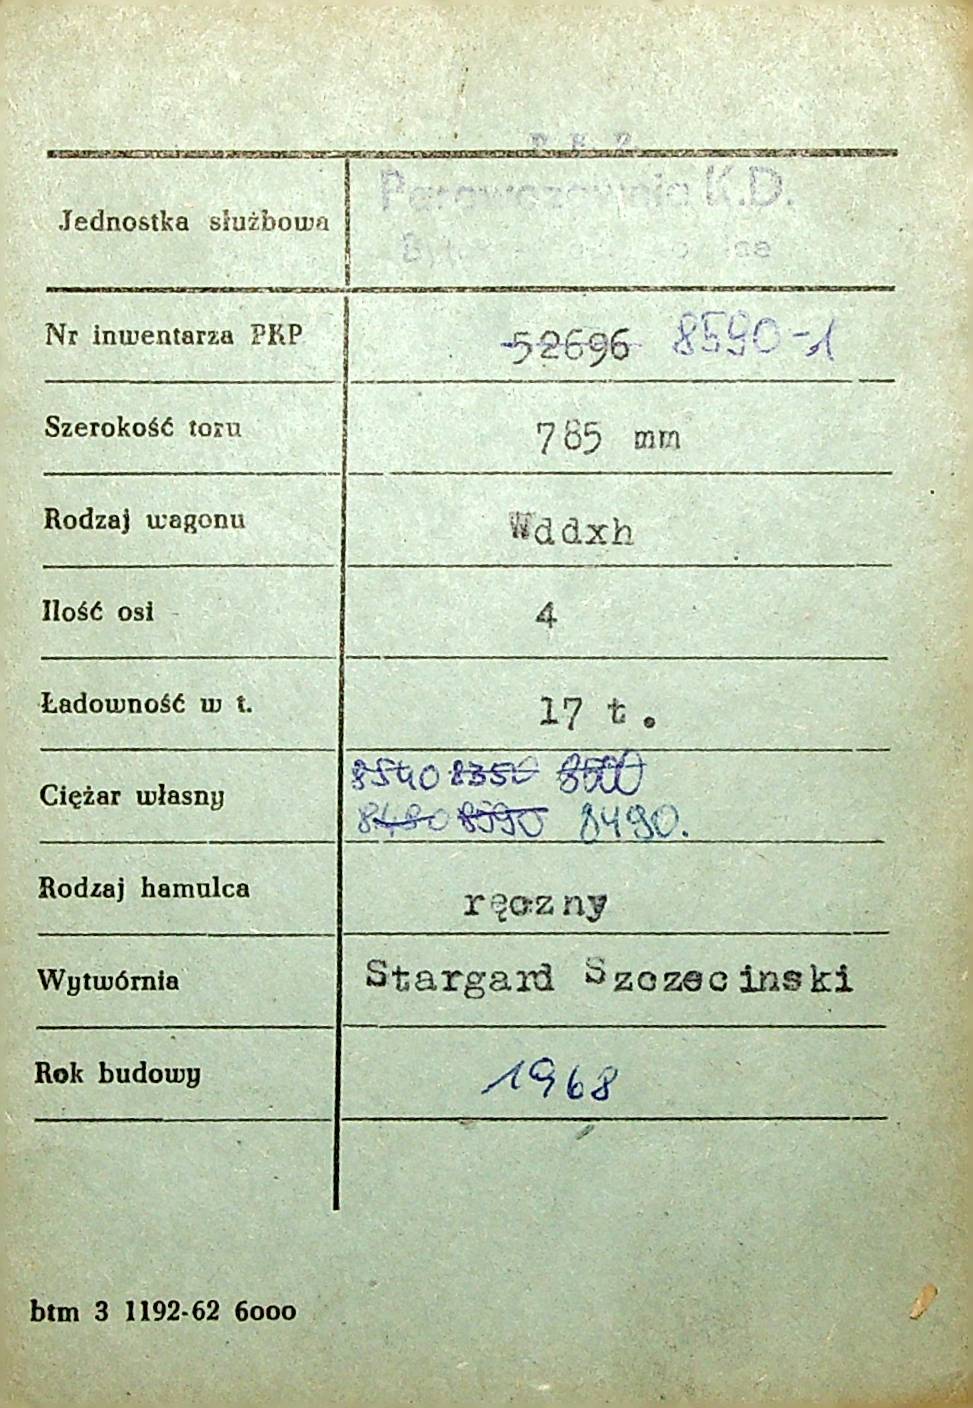 P. K. P.
Jednostka służbowa Parowozownia K.D.
Nr inwentarza PKP 52696 8590-1
Szerokość toru 785 mm
Rodzaj wagonu Wddxh
Ilość osi 4
Ładowność w t. 17 t.
Ciężar własny 8540 8350 8500
8480 8590 8490.
Rodzaj hamulca ręczny
Wytwórnia Stargard Szczecinski
Rok budowy 1968
btm 3 1192-62 6000